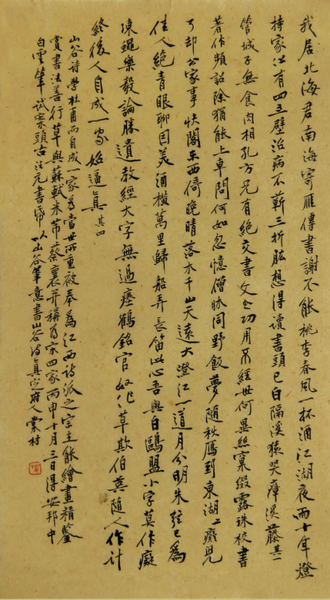 我居北海君南海寄雁傳書謝不能桃李春風一杯酒江湖夜雨十年燈
持家有四立壁治病不蘄三折肱想得讀書頭已白隔溪猿哭瘴溪藤其一
管城子無食肉相孔方兄有絕交書文章功用不經世何異絲窠綴露珠校書
著作頻詔除猶能上車問何如忽憶僧牀同野飯夢隨秋雁到東湖二癡兒
了卻公家事快閣東西倚晚晴落木千山天遠大澄江一道月分明朱絃已為
佳人絕青眼聊因美酒橫萬里歸船弄長笛此心吾與白鷗盟小字莫作癡
凍蠅樂毅論勝遺教經大字無過瘞鶴銘官奴作草欺伯英隨人作計
終後人自成一家始逼真其四
山谷詩學杜甫而自成一家為當世所重被奉為江西詩派之宗主能繪畫精鑒
賞書法善行草與蘇軾米芾蔡襄并稱為宋四家丙申十月三日得安邦中
白雲筆試頭古法元書紙以山谷筆意書山谷詩真定府人雲村